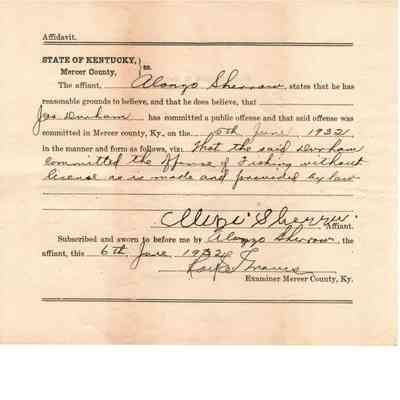 Affidavit.
STATE OF KENTUCKY,
Mercer County, } ss.
The affiant, Alonzo Sherrow, states that he has
reasonable grounds to believe, and that he does believe, that
Jas Durham has committed a public offense and that said offense was
committed in Mercer county, Ky., on the 6th June 1932
in the manner and form as follows, viz: That the said Durham
committed the offense of Fishing without
license as is made and provided by law
Sherrow Affiant.
Subscribed and sworn to before me by Alonzo Sherrow, the
affiant, this 6th June 1932
Graves
Examiner Mercer County, Ky.